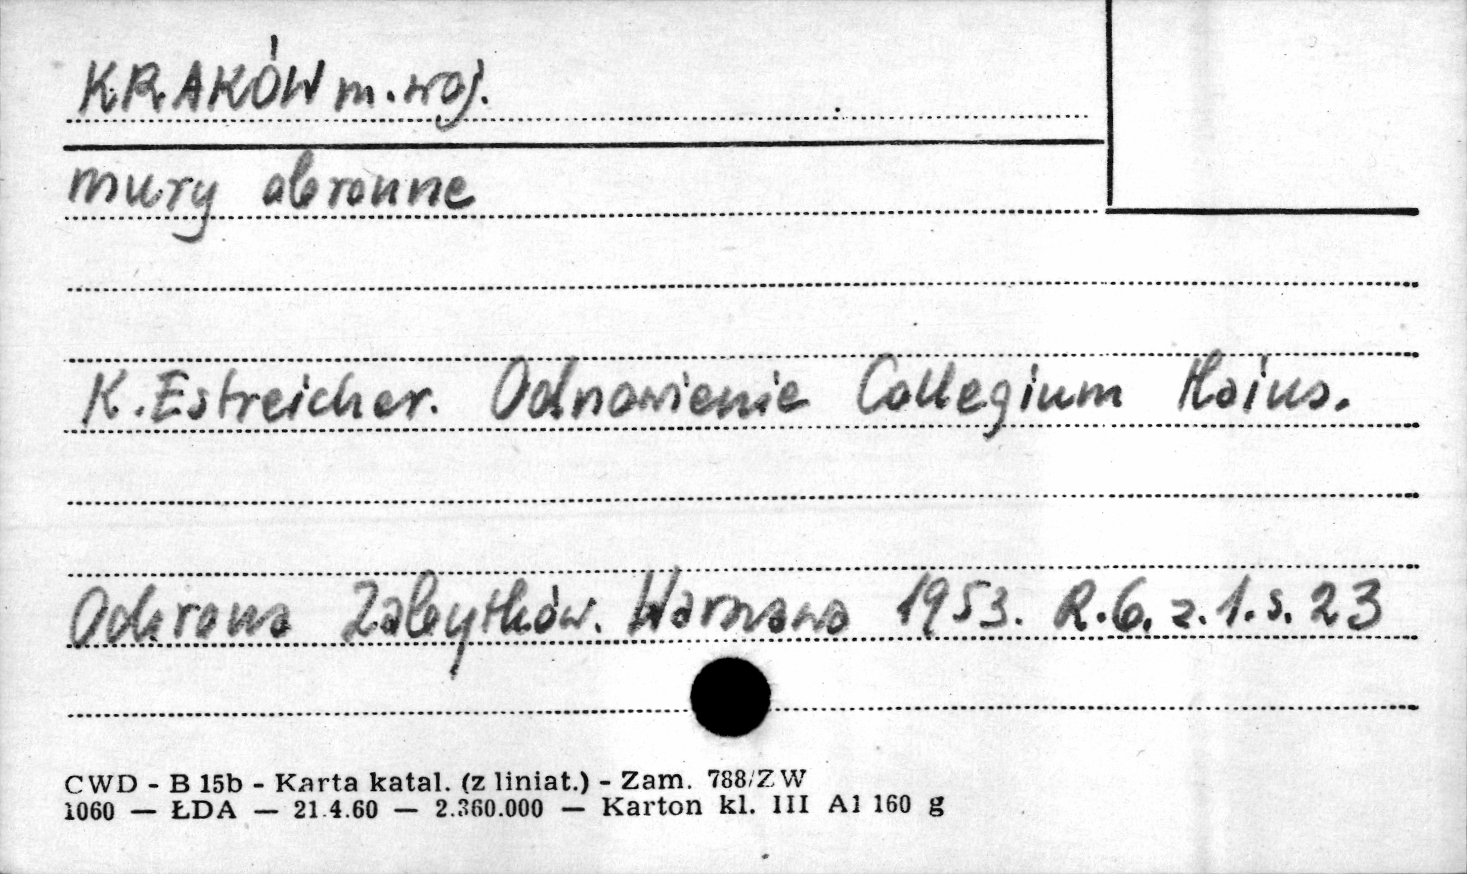 KRAKÓW m. woj.
mury obronne
K. Estreicher. Odnowienie Collegium Maius.
Ochrona Zabytków. Warszawa 1953. R. 6. z. 1. s. 23
CWD - B 15b - Karta katal. (z liniat.) - Zam. 788/ZW
1060 — ŁDA — 21.4.60 — 2.360.000 — Karton kl. III A1 160 g